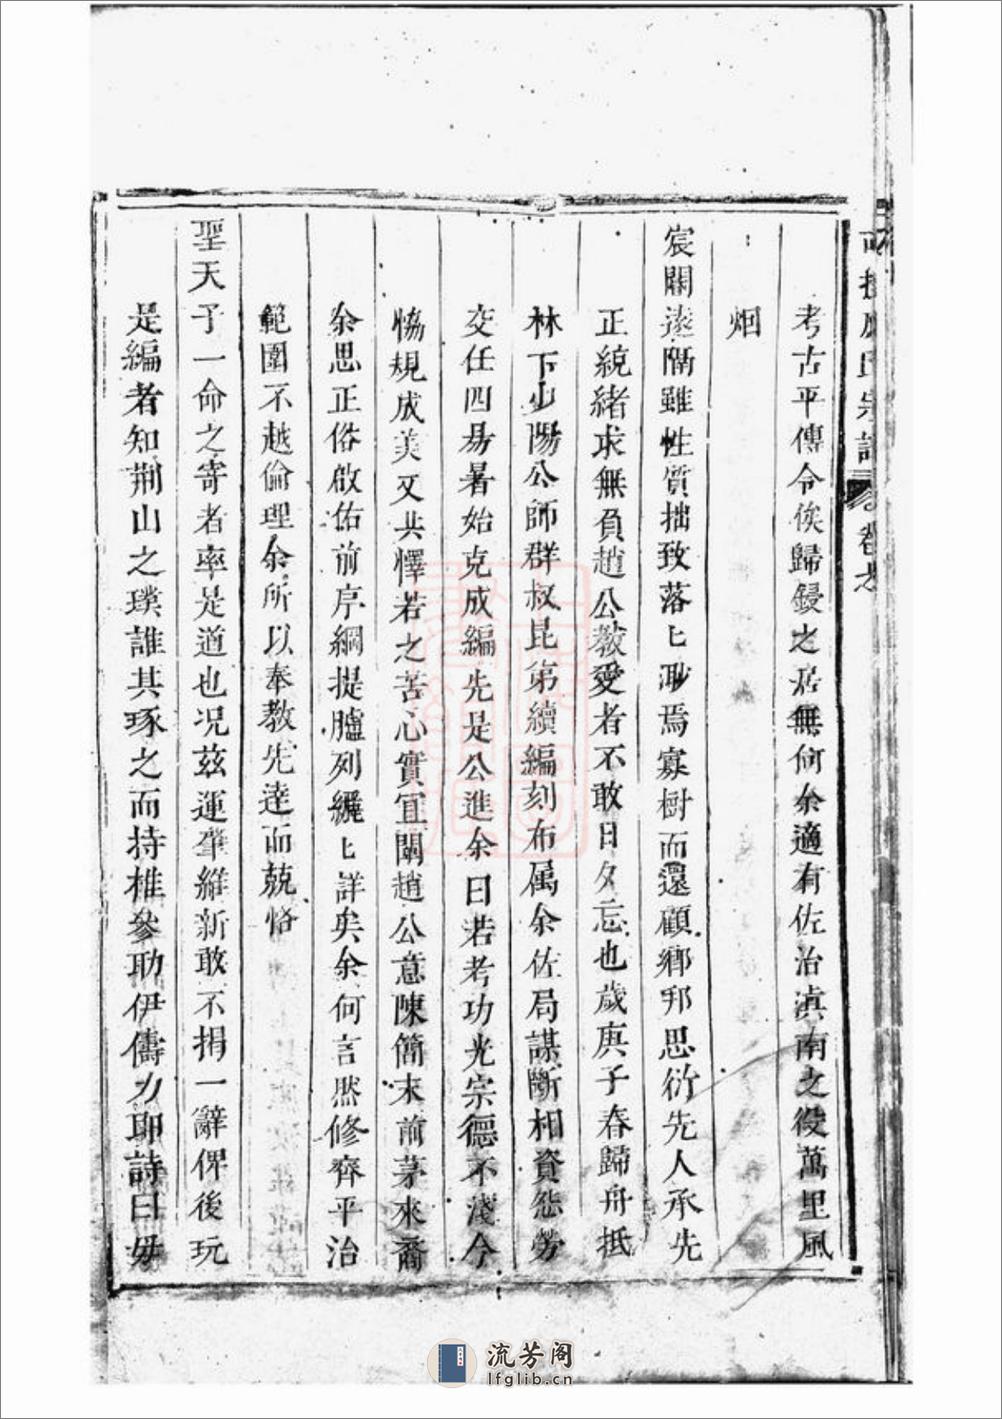 氏宗譜 卷之
考古平傳令俟歸鋟之居無何余適有佐治滇南之役萬里風
烟
宸關遠隔雖性質拙致落匕渺焉寡樹而還顧鄉邦思衍先人承先
正統緒求無負趙公教愛者不敢日夕忘也歲庚子春歸舟抵
林下山陽公師群叔昆弟續編刻布属余佐局謀斷相資怨勞
交任四易暑始克成編先是公進余曰若考功光宗德不淺今
恊規成美又共懌若之苦心實宜闡趙公意陳簡末前茅來裔
余思正俗啟佑前序綱提臚列纚匕詳矣余何言然修齊平治
範圍不越倫理余所以奉教先達而兢恪
聖天子一命之寄者率是道也况兹運肇維新敢不捐一辭俾後玩
是編者知荆山之璞誰其琢之而持椎參助伊儔力耶詩曰毋
流芳阁
lfglib.cn